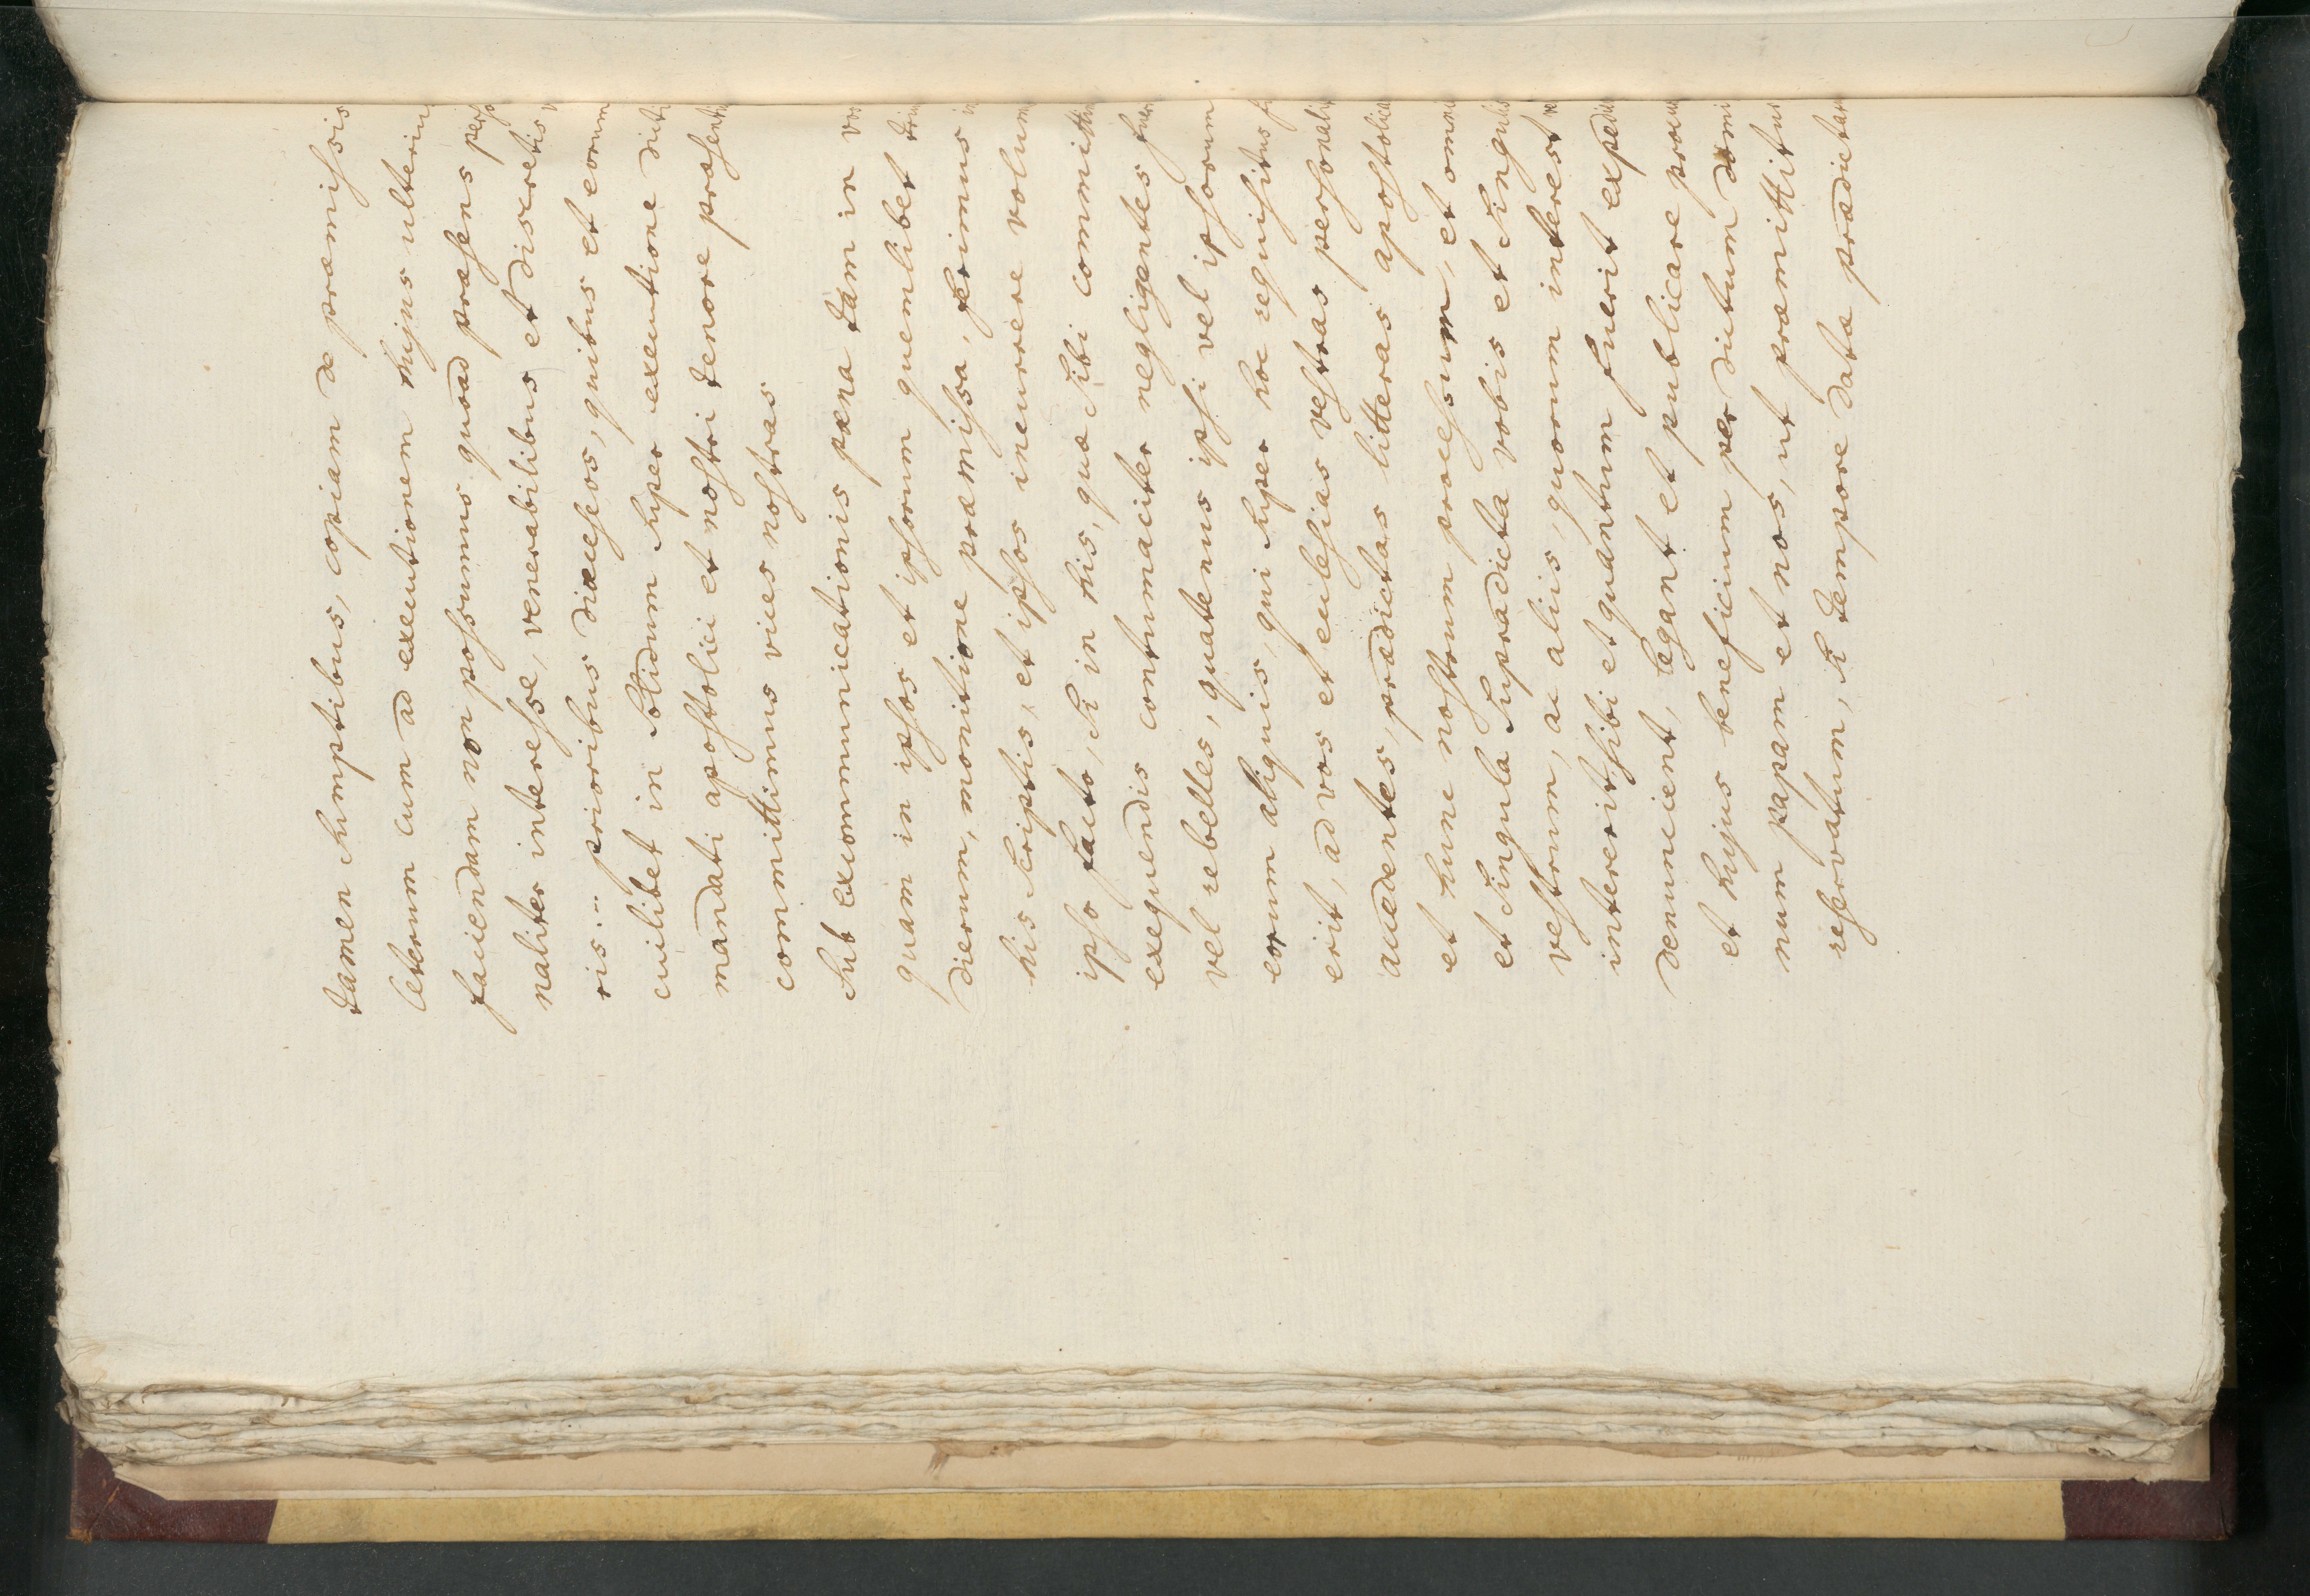 tamen sumptibus, copiam de præmissis
ceterum cum ad executionem hujus ulterius
faciendam non possumus quoad præsens perso
naliter interesse, venerabilibus et discretis v
ris .. prioribus diœceseos, quibus et eorum
cuilibet in solidum super executione dicti
mandati apostolici et nostri tenore præsenti
committimus vices nostras
sub excommunicationis pæna tam in vos
quam in ipsos et ipsorum quemlibet triu
dierum, monitione præmissa, ferimus in
his scriptis, et ipsos incurrere volum
ipso facto, si in his, quæ sibi committim
exequendis contumaciter negligentes fuer
vel rebelles, quatenus ipsi vel ipsorum
eorum aliquis, qui super hoc requisitus fu
erit, ad vos et ecclesias vestras personalit
accedentes, prædictas litteras apostolic
et hunc nostrum processum, et omni
et singula supradicta vobis et singulis
vestrum, ac aliis, quorum interest vel
intererit, sibi et quantum fuerit expedie
denuncient, legant et publicare procu
et hujus beneficium per dictum domi
num papam et nos, ut præmittitur
reservatum, si tempore data prædictar